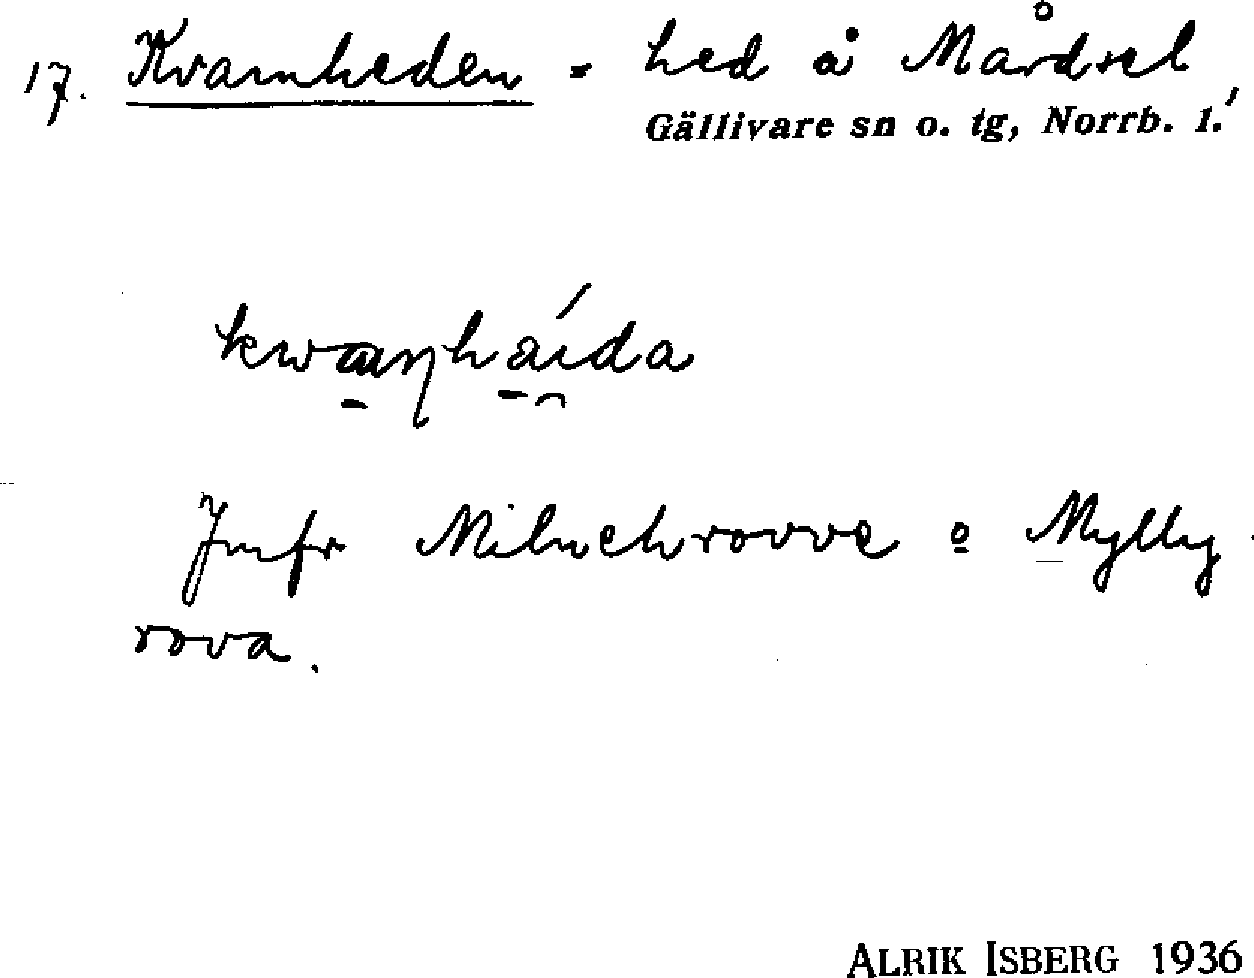 17. Kvarnheden = hed å Mårdsel
Gällivare sn o. tg, Norrb. l.
kwaŋháida
Jmfr o Mylly-
rova.
ALRIK ISBERG 1936